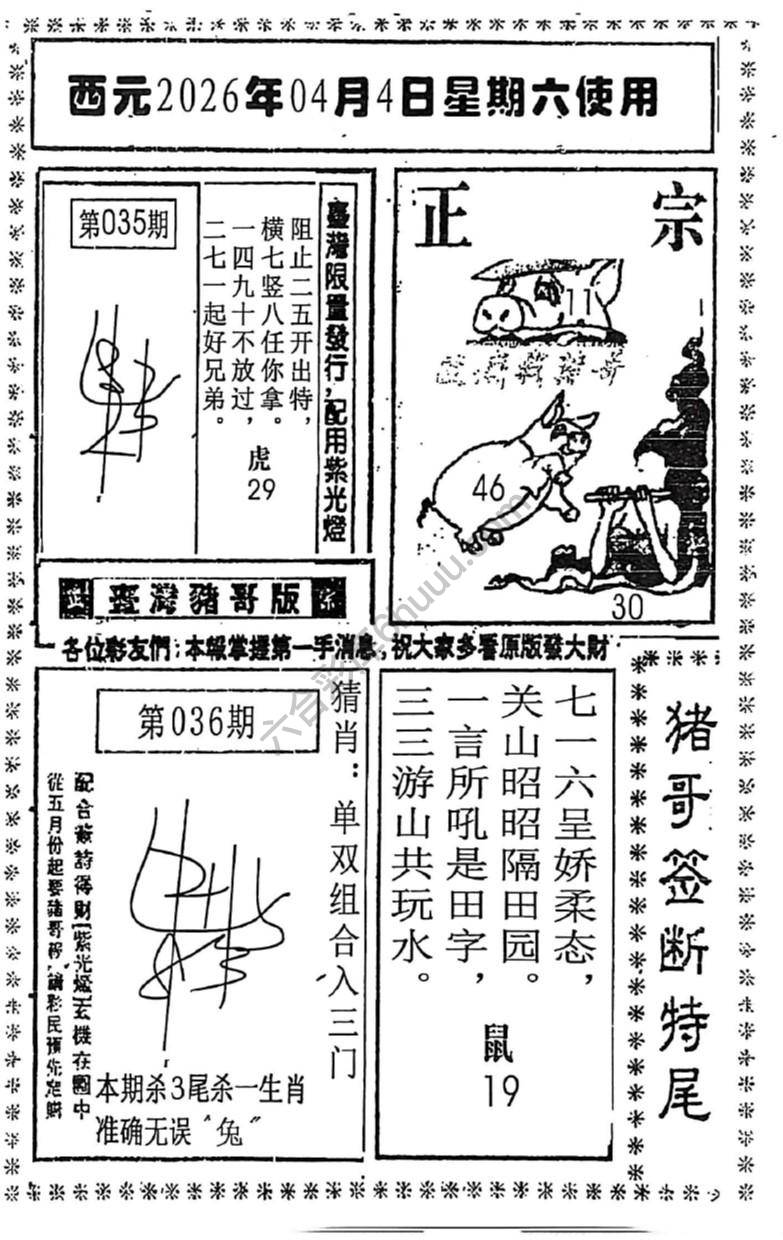 西元2026年04月4日星期六使用
第035期
臺灣限量發行，配用紫光燈
阻止二五开出特，
横七竖八任你拿。
一四九十不放过，
二七一起好兄弟。
虎
29
正宗
11
46
30
臺灣豬哥版
各位彩友們：本報掌握第一手消息，祝大家多看原版發大財
第036期
猜肖：单双组合入三门
配合簽詩得財
紫光燈玄機在圖中
從五月份起要豬哥報
請彩民預先定購
本期杀3尾杀一生肖
准确无误“兔”
七一六呈娇柔态，
关山昭昭隔田园。
一言所吼是田字，
三三游山共玩水。
鼠
19
猪哥签断特尾
六合彩库6huuu.com